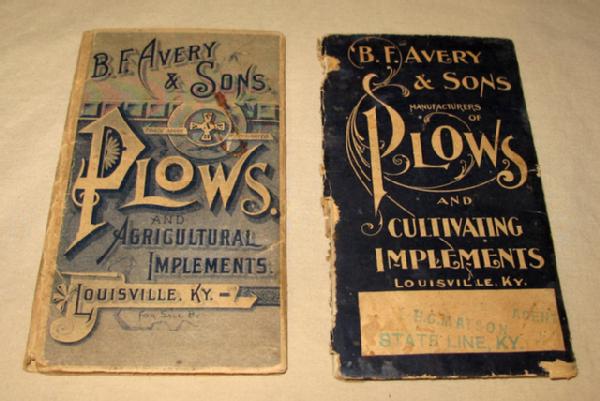 B. F. AVERY
& SONS.
TRADE MARK
PLOWS.
AND
AGRICULTURAL
IMPLEMENTS.
LOUISVILLE, KY.
For Sale By
B. F. AVERY
& SONS
MANUFACTURERS
OF
PLOWS
AND
CULTIVATING
IMPLEMENTS
LOUISVILLE, KY.
AGENT
E.C. MATSON
STATE LINE, KY.